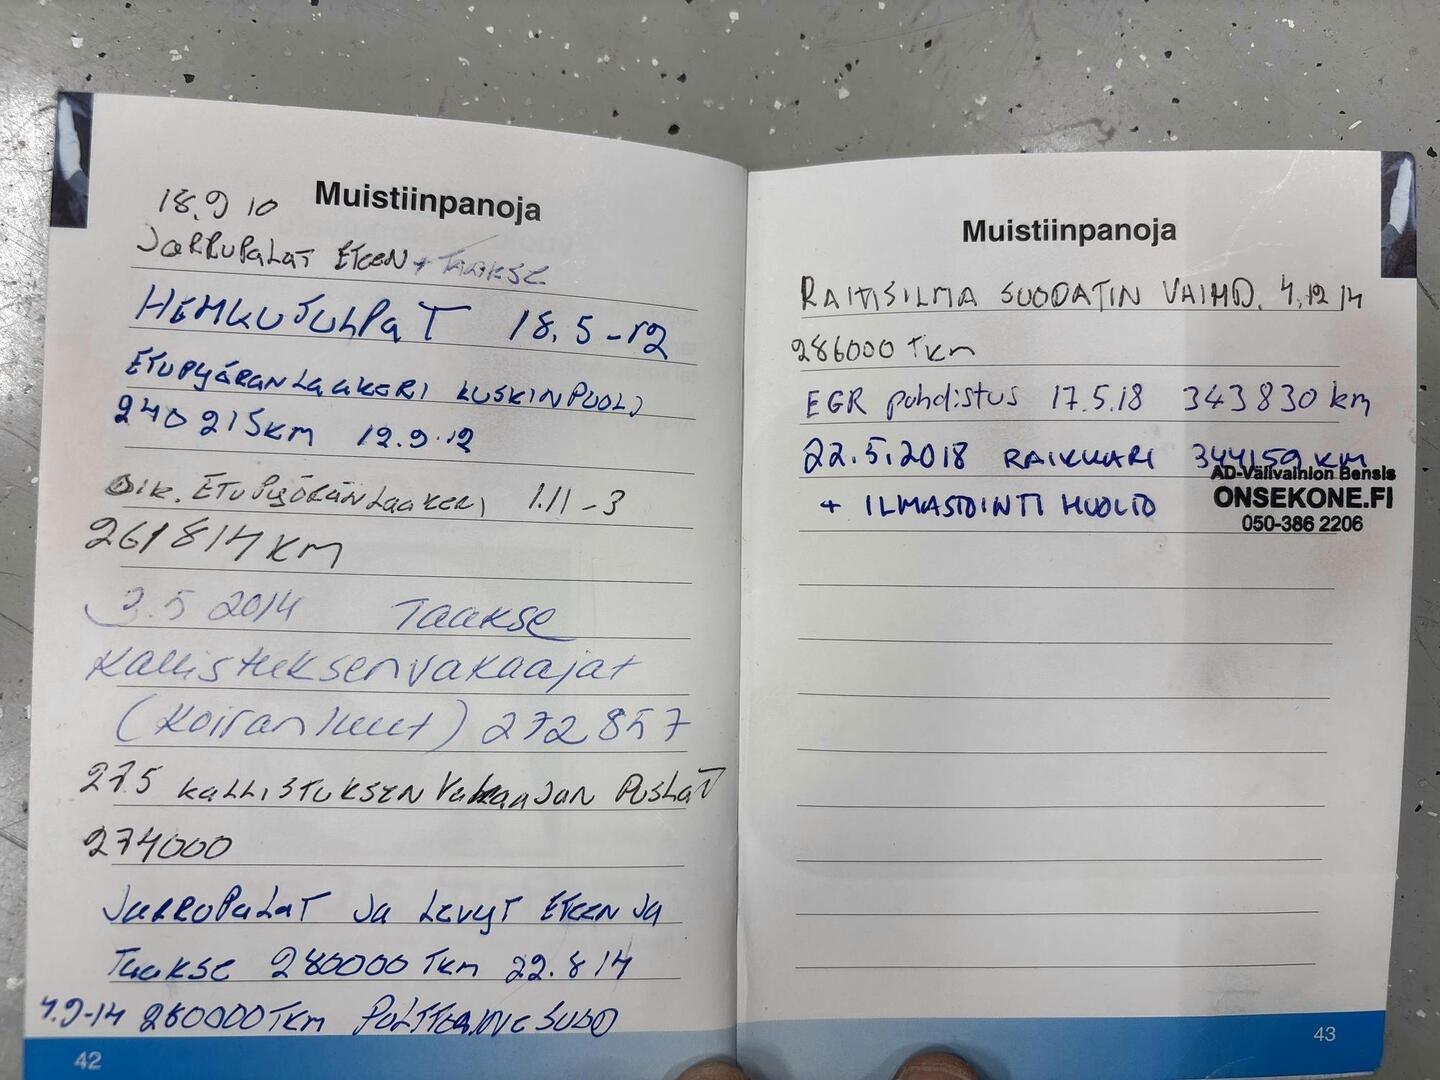 18.9 10
Muistiinpanoja
JARRUPALAT ETEEN + TAAKSE
HEHKUTULPAT 18.5-12
ETUPYÖRÄN LAAKERI KUSKINPUOLI
240215km 12.9.12
Oik. ETUPYÖRÄN LAAKERI 1.11-3
261814KM
3.5 2014 TAAKSE
Kallistuksenvakaajat
(Koiranluut) 272857
27.5 KALLISTUKSEN VAKAAJAN PUSLAT
274000
JARRUPALAT JA LEVYT ETEEN JA
TAAKSE 280000 TKM 22.8 14
4.9-14 280000TKM POLTTOAINE SUOD
42
Muistiinpanoja
RAITISILMA SUODATIN VAIHD. 4.12 14
286000 TKm
EGR puhdistus 17.5.18 343830 km
22.5.2018 RAIKKARI 344159 KM
+ ILMASTOINTI HUOLTO
AD-Välivainion Bensis
ONSEKONE.FI
050-386 2206
43